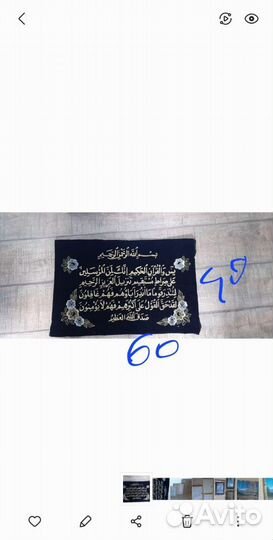 بِسْمِ اللهِ الرَّحْمنِ الرَّحِيمِ
يس وَالْقُرْآنِ الْحَكِيمِ إِنَّكَ لَمِنَ الْمُرْسَلِينَ
عَلَى صِرَاطٍ مُسْتَقِيمٍ تَنْزِيلَ الْعَزِيزِ الرَّحِيمِ
لِتُنْذِرَ قَوْمًا مَا أُنْذِرَ آبَاؤُهُمْ فَهُمْ غَافِلُونَ
لَقَدْ حَقَّ الْقَوْلُ عَلَى أَكْثَرِهِمْ فَهُمْ لَا يُؤْمِنُونَ
صَدَقَ اللهُ الْعَظِيمُ
40
60
Avito